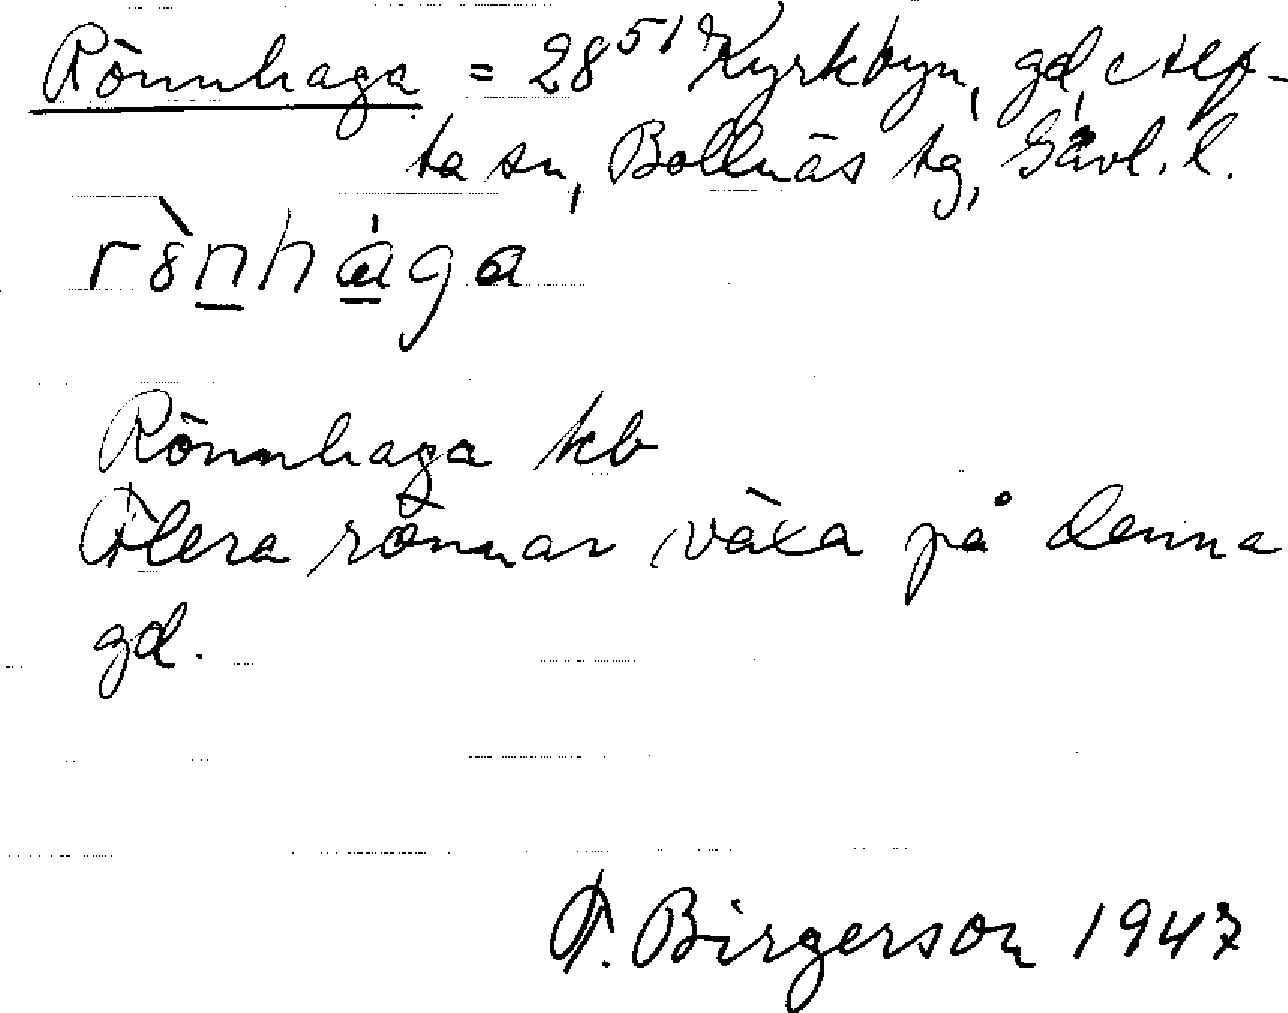 Rönnhaga = 28⁵¹ Kyrkbyn, gd, Alf-
ta sn, Bollnäs tg, Gävl. l.
rònhága
Rönnhaga kb
Flera rönnar växa på denna
gd.
F. Birgerson 1947